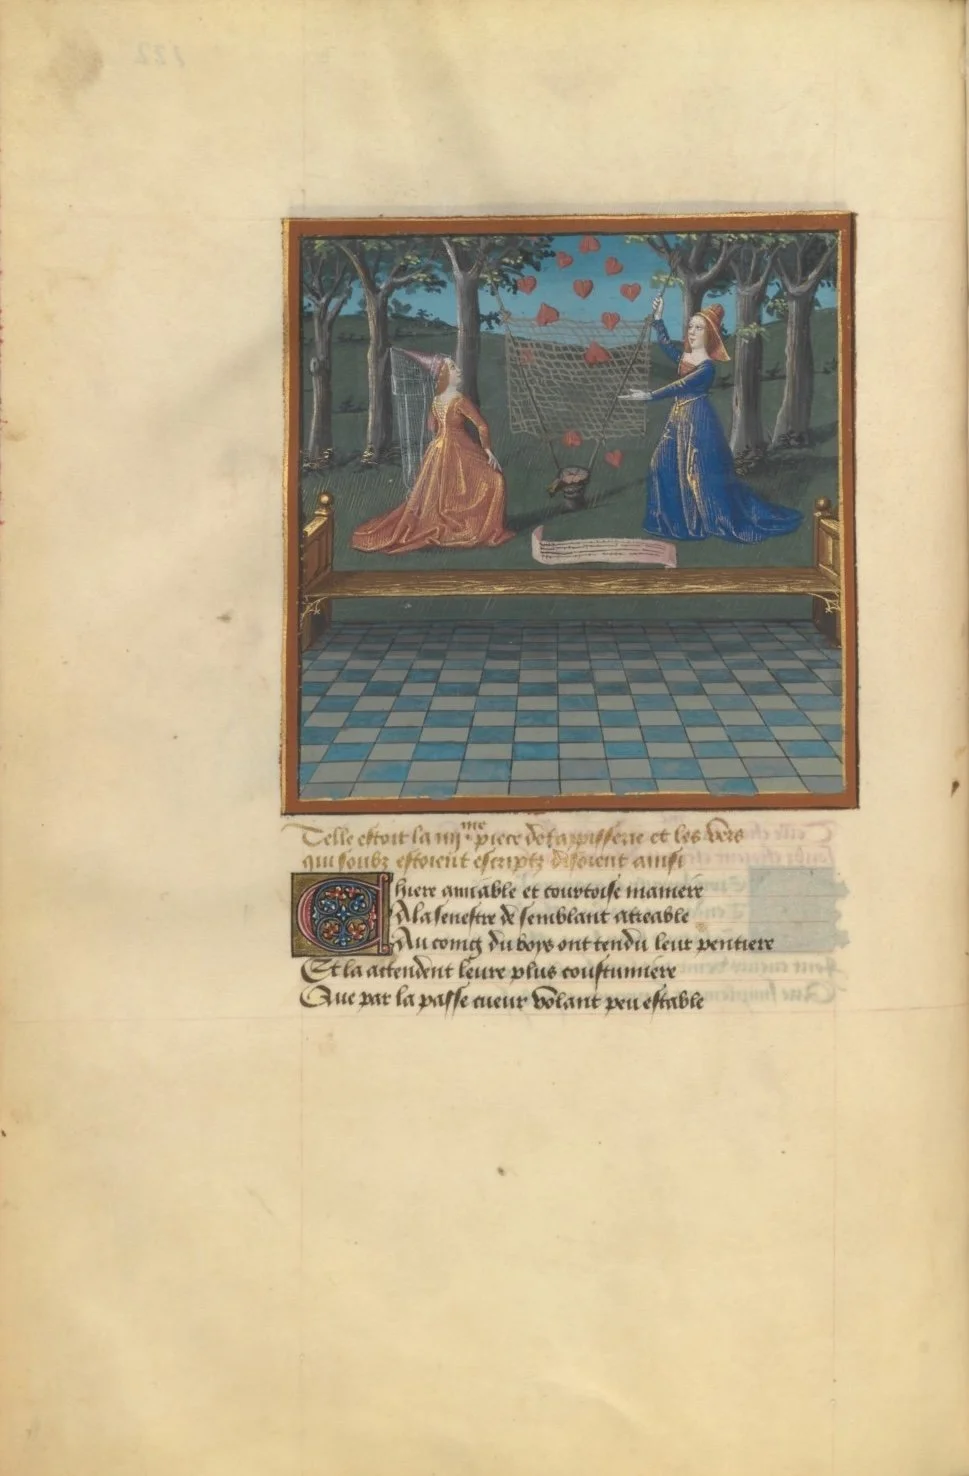 Telle estoit la iiij me piece de tapisserie et les vers
qui soubz estoient escriptz disoient ainsi
Chiere amiable et courtoise maniere
A la senestre de semblant atreable
Au coing du boys ont tendu leur pentiere
Et la attendent leure plus coustumiere
Que par la passe cueur volant peu estable